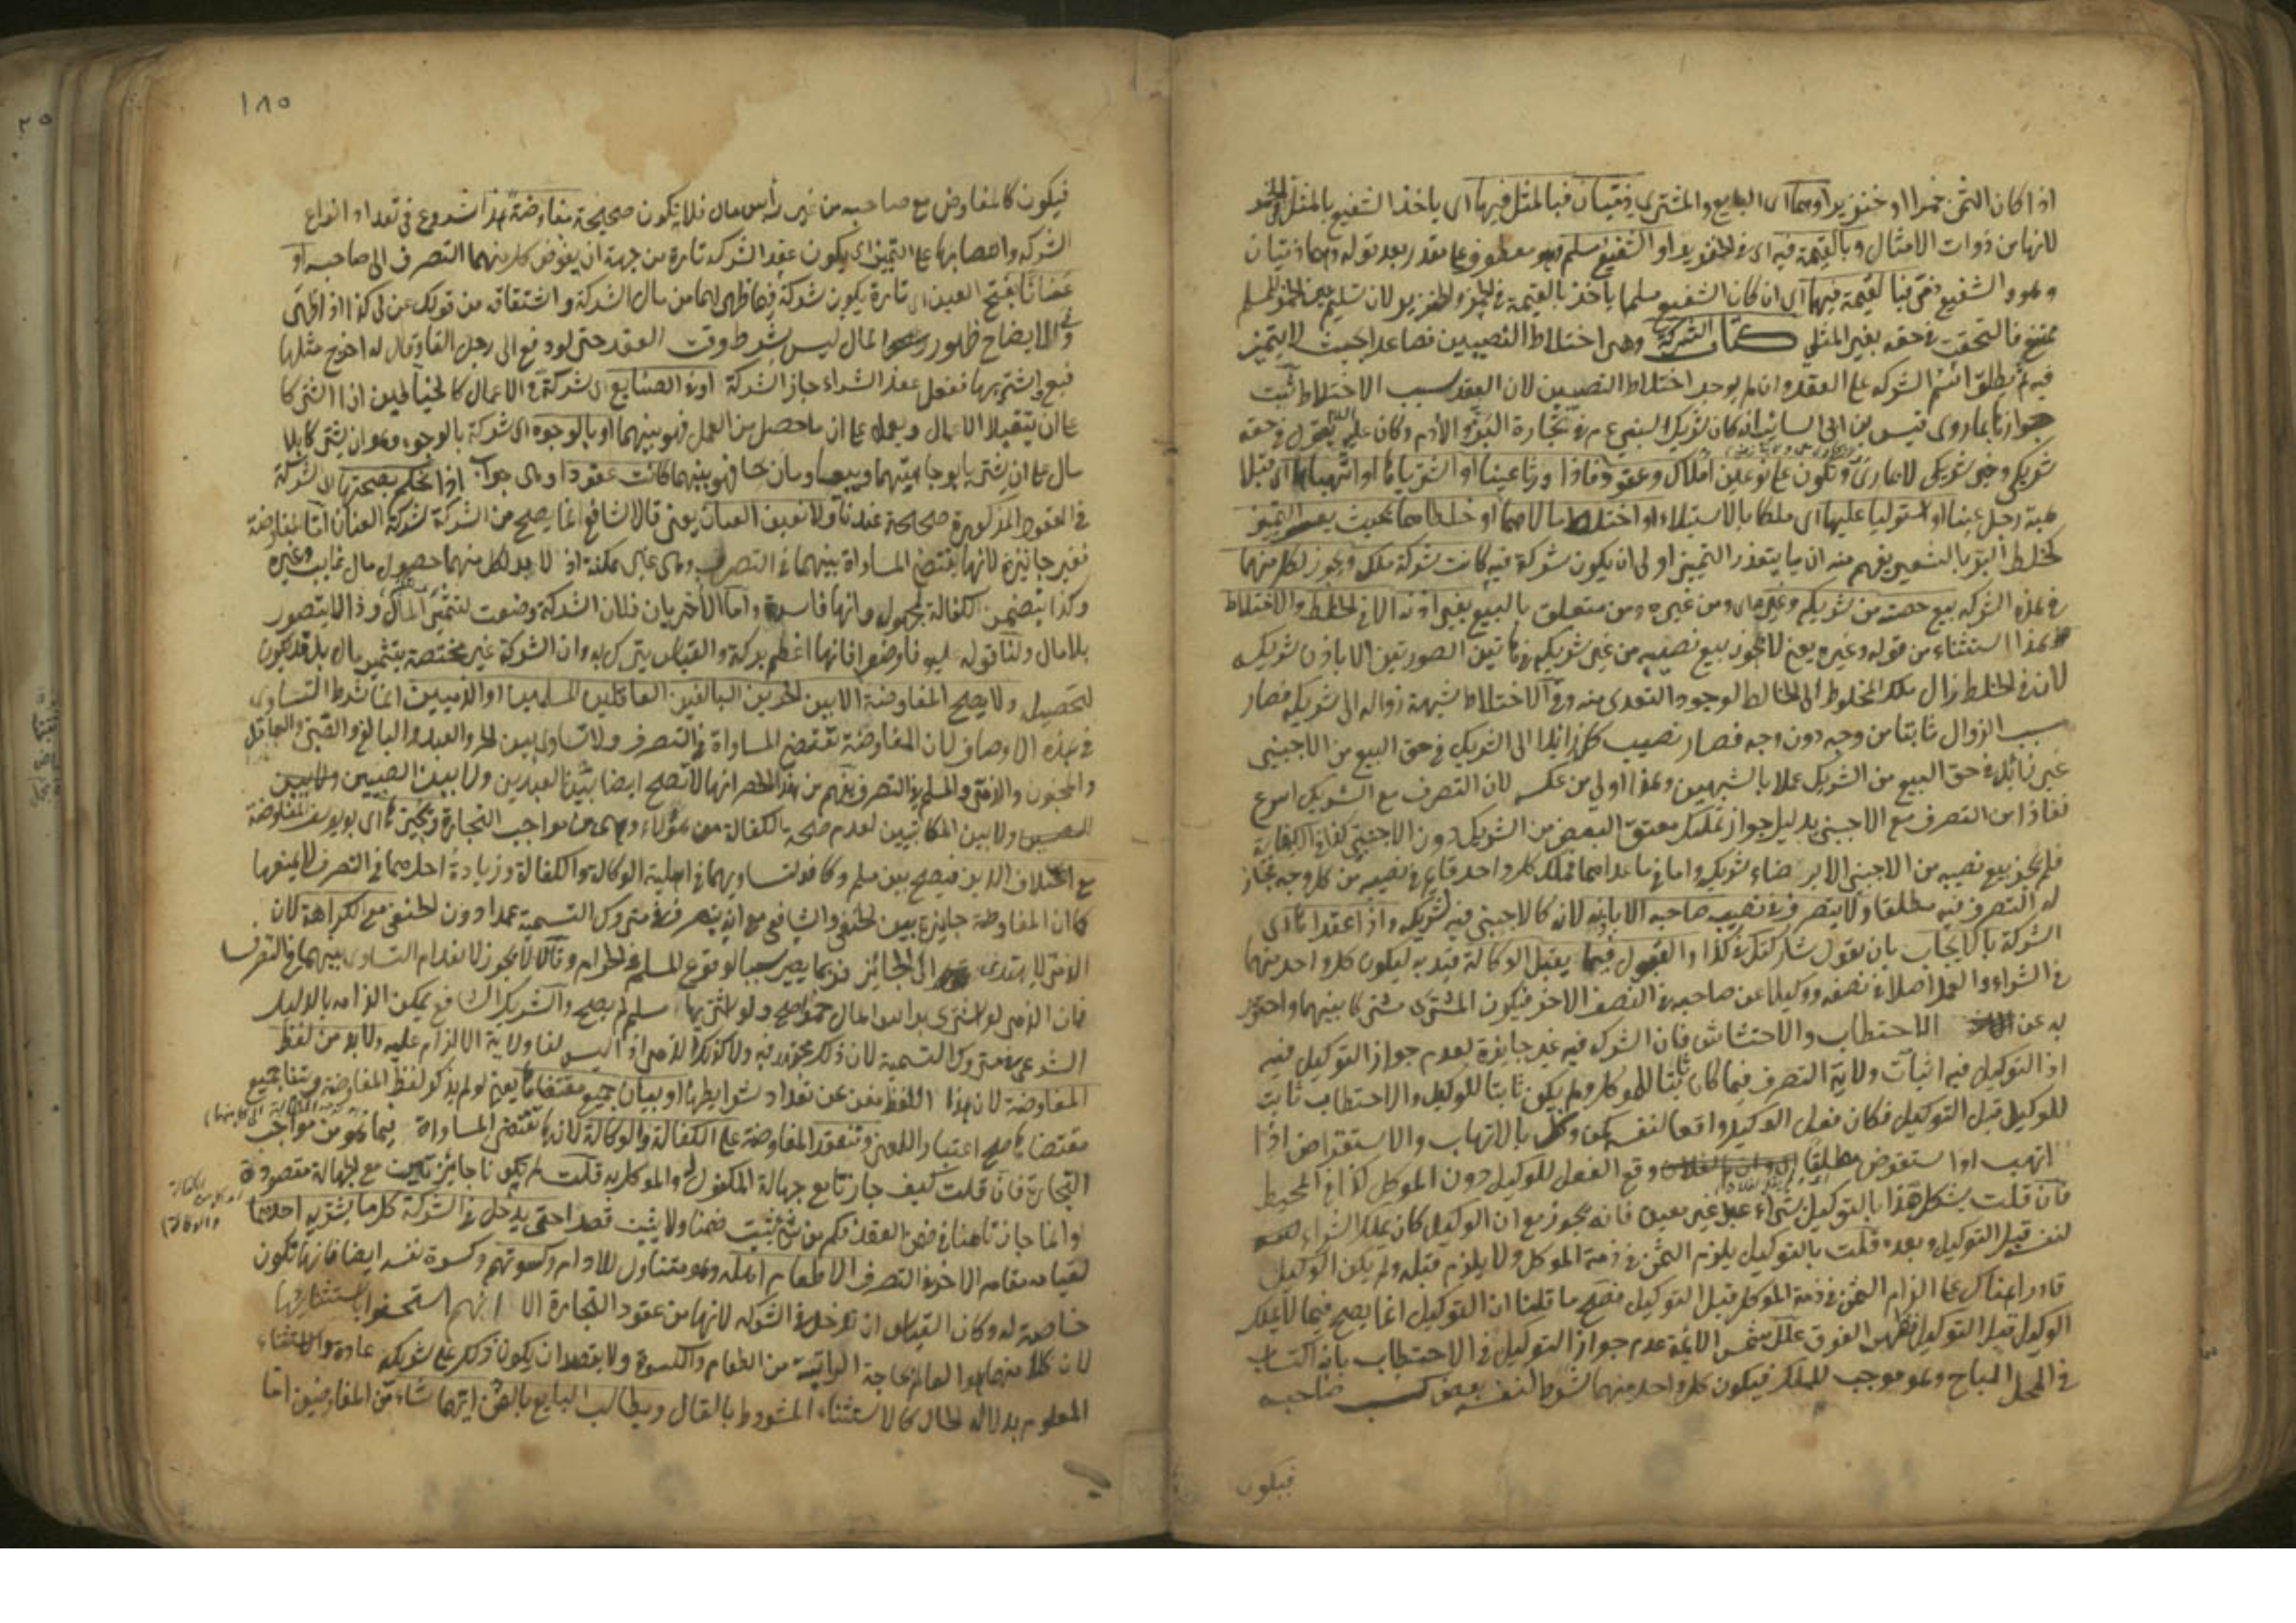 اذا كان الثمن خمرا او خنزيرا وهما اى البايع والمشترى ذميان فبالمثل فيها اى ياخذ الشفيع بالمثل فى الخمر
لانها من ذوات الامثال وبالقيمة فيه اى فى الخنزير او الشفيع مسلم معطوف على مقدر بعد قوله وهما ذميان
وهو والشفيع ذمى فبالقيمة فيها اى ان كان الشفيع مسلما ياخذ بالقيمة فى الخمر والخنزير لان تسليم عين الخمر للمسلم
ممتنع فالتحقت فى حقه بغير المثلى كتاب الشركة وهى اختلاط النصيبين فصاعدا بحيث لا يتميز
ثم يطلق اسم الشركة على العقد وان لم يوجد اختلاط النصيبين لان العقد سبب الاختلاط ثبت
جوازها بما روى قيس بن ابى السائب انه كان شريك النبى ع م فى تجارة البز والأدم وكان عليه يقول فى حقه
شريكى وخير شريكى لا يمارى وتكون على نوعين املاك وعقود فاذا ورثا عينا او اشترياها او اتهباها اى قبلا
هبة رجل عينا او استوليا عليها اى ملكا بالاستيلاء او اختلط مالاهما او خلطاهما بحيث يعسر التمييز
كخلط البر بالشعير يفهم منه ان ما يتعذر التمييز اولى ان يكون شركة فيه كانت شركة ملك ويجوز لكل منهما
فى هذه الشركة بيع حصته من شريكه وغيره اى ومن غيره ومن متعلق بالبيع بغير اذنه الا فى الخلط والاختلاط
هذا استثناء من قوله وغيره يعنى لا يجوز بيع نصيبه من غير شريكه فى هاتين الصورتين الا باذن شريكه
لان فى الخلط زال ملك المخلوط الى الخالط لوجود التعدى منه وفى الاختلاط شبهة زواله الى شريكه فصار
سبب الزوال ثابتا من وجه دون وجه فصار نصيب كل زائلا الى الشريك فى حق البيع من الاجنبى
غير زائل فى حق البيع من الشريك عملا بالشبهين وهذا اولى من عكسه لان التصرف مع الشريك اسرع
نفاذا من التصرف مع الاجنبى بدليل جواز تمليك معتق البعض من الشريك دون الاجنبى كذا فى الكفاية
فلم يجز بيع نصيبه من الاجنبى الا برضاء شريكه واما فى ما عداهما فملك كل واحد قايم فى نصيبه من كل وجه فجاز
له التصرف فيه مطلقا ولا يتصرف فى نصيب صاحبه الا باذنه لانه كالاجنبى فيه لشريكه واذا عقداها اى
الشركة بالايجاب بان يقول شاركتك فى كذا والقبول فيما يقبل الوكالة قيد به ليكون كل واحد منهما
فى الشراء والبيع اصلا فى نصفه ووكيلا عن صاحبه فى النصف الاخر فيكون المشترى مشتركا بينهما واحترز
به عن الاحتطاب والاحتشاش فان الشركة فيه غير جائزة لعدم جواز التوكيل فيه
اذ التوكيل فيه اثبات ولاية التصرف فيما كان ثابتا للموكل ولم يكن ثابتا للوكيل والاحتطاب ثابت
للوكيل قبل التوكيل فكان فعل الوكيل واقعا لنفسه كمن وكل بالاتهاب والاستقراض اذا
اتهب او استقرض مطلقا وقع الفعل للوكيل دون الموكل كذا فى المحيط
فان قلت يشكل هذا بالتوكيل بشراء عبد غير معين فانه يجوز مع ان الوكيل كان يملك الشراء لنفسه
لنفسه قبل التوكيل وبعده قلت بالتوكيل يلزم الثمن فى ذمة الموكل ولا يلزم قبله ولم يكن الوكيل
قادرا هناك على الزام الثمن فى ذمة الموكل قبل التوكيل فصح ما قلنا ان التوكيل انما يصح فيما لا يملكه
الوكيل قبل التوكيل فظهر الفرق علل شمس الائمة عدم جواز التوكيل فى الاحتطاب بانه اكتساب
فى المحل المباح وهو موجب للملك فيكون كل واحد منهما شرط لنفسه بعض كسب صاحبه
فيكون
١٨٥
فيكون كالمفاوض مع صاحبه من غير رأس مال فلا يكون صحيحة مفاوضة هذا شروع فى تعداد انواع
الشركة وانتصابها على التمييز اى يكون عقد الشركة تارة من جهة ان يفوض كل منهما التصرف الى صاحبه او
عنانا بفتح العين اى تارة يكون شركة فيما ظهر لهما من مال الشركة واشتقاقه من قولك عن لى كذا اذا ظهر
وفى الايضاح ظهور المال ليس بشرط وقت العقد حتى لو دفع الى رجل الفا وقال له اخرج مثلها
فبع واشتر بها ففعل عقد الشراء جاز الشركة او فى الصنايع اى شركة فى الاعمال كالخياطين اذا اشتركا
على ان يتقبلا الاعمال ويعملا على ان ما حصل من العمل فهو بينهما او بالوجوه اى شركة بالوجوه وهو ان يشتركا بلا
مال على ان يشتريا بوجاهتهما ويبيعا وما ربحا فهو بينهما كانت عقودا وهى جواب اذا نحكم بصحتها اى الشركة
فى العقود المذكورة صحيحة عندنا ولا نعين العنان يعنى قال الشافعى انما يصح من الشركة شركة العنان اما المفاوضة
فغير جائزة لانها يقتضى المساواة بينهما فى التصرف وهى غير ممكنة اذ لا بد لكل منهما حصول مال غايب وغيره
وكذا يتضمن الكفالة بمجهول وانها فاسدة واما الأخريان فلان الشركة وضعت لتثمير المال وذا لا يتصور
بلا مال ولنا قوله عليه فاوضوا فانها اعظم بركة والقياس يترك به وان الشركة غير مختصة بتثمير مال بل قد يكون
لتحصيله ولا يصح المفاوضة الا بين الحرين البالغين العاقلين المسلمين او الذميين انما شرط التساوى
فى هذه الاوصاف لان المفاوضة تقتضى المساواة فى التصرف ولا تساوى بين الحر والعبد والبالغ والصبى والعاقل
والمجنون والذمى والمسلم فى التصرف يفهم من هذا الحصر انها لا تصح ايضا بين العبدين ولا بين الصبيين ولا بين
ولا بين المكاتبين لعدم صحة الكفالة من هؤلاء وهى من مواجب التجارة ويجيزها اى ابو يوسف المفاوضة
مع اختلاف الدين فيصح بين مسلم وكافر لتساويهما فى اهلية الوكالة والكفالة وزيادة احدهما فى التصرف لا يمنعها
كما ان المفاوضة جايزة بين الحنفى والشافعى مع انه يتصرف فى متروك التسمية عمدا دون الحنفى مع الكراهة لان
الذمى لا يهتدى الى الجائز فربما يصير سببا لوقوع المسلم فى الحرام وقالا لا يجوز لانعدام التساوى بينهما فى التصرف
فان الذمى لو اشترى برأس المال خمرا صح ولو اشتريها مسلم لم يصح والشريك الشافعى يمكن الزامه بالدليل
الشرعى فى متروك التسمية لان ذلك مجتهد فيه ولا كذلك الذمى اذ ليس لنا ولاية الالزام عليه ولا بد من لفظ
المفاوضة لان هذا اللفظ مغن عن تعداد شرايطها او بيان جميع مقتضاها يعنى لو لم يذكر لفظ المفاوضة وبينا جميع
مقتضاها صح اعتبارا للمعنى وتنعقد المفاوضة على الكفالة والوكالة لانها تقتضى المساواة فيما هو من مواجب
التجارة فان قلت كيف جازتا مع جهالة المكفول له والموكل به قلت لم يكونا جايزتين مع الجهالة مقصودة
وانما جازتا هنا فى ضمن العقد فكم من شئ يثبت ضمنا ولا يثبت قصدا حتى يدخل فى الشركة كل ما يشتريه احدهما
لقيامه مقام الاخر فى التصرف الا طعام اهله وهو متناول للادام وكسوتهم وكسوة نفسه ايضا فانها تكون
خاصة له وكان القياس ان تدخل فى الشركة لانها من عقود التجارة الا انهم استحسنوا باستثنائها
لان كلا منهما العالم بحاجة الراتبة من الطعام والكسوة ولا يقصد ان يكون ذلك على شريكه عادة والاستثناء
المعلوم بدلالة الحال كالاستثناء المشروط بالقال ويطالب البايع بالثمن ايهما شاء من المفاوضين اما